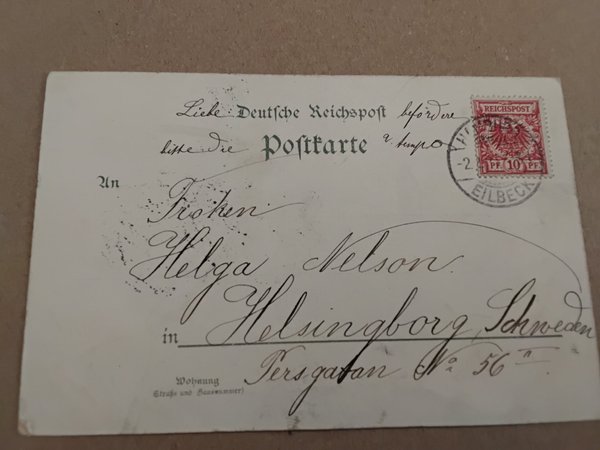 Liebe Deutsche Reichspost befördere
bitte die Postkarte tempo
REICHSPOST
PF. 10 PF.
-2.
EILBECK
An
Froken
Helga Nelson.
in Helsingborg, Schweden
Persgatan No 56 a.
Wohnung
(Straße und Hausnummer)